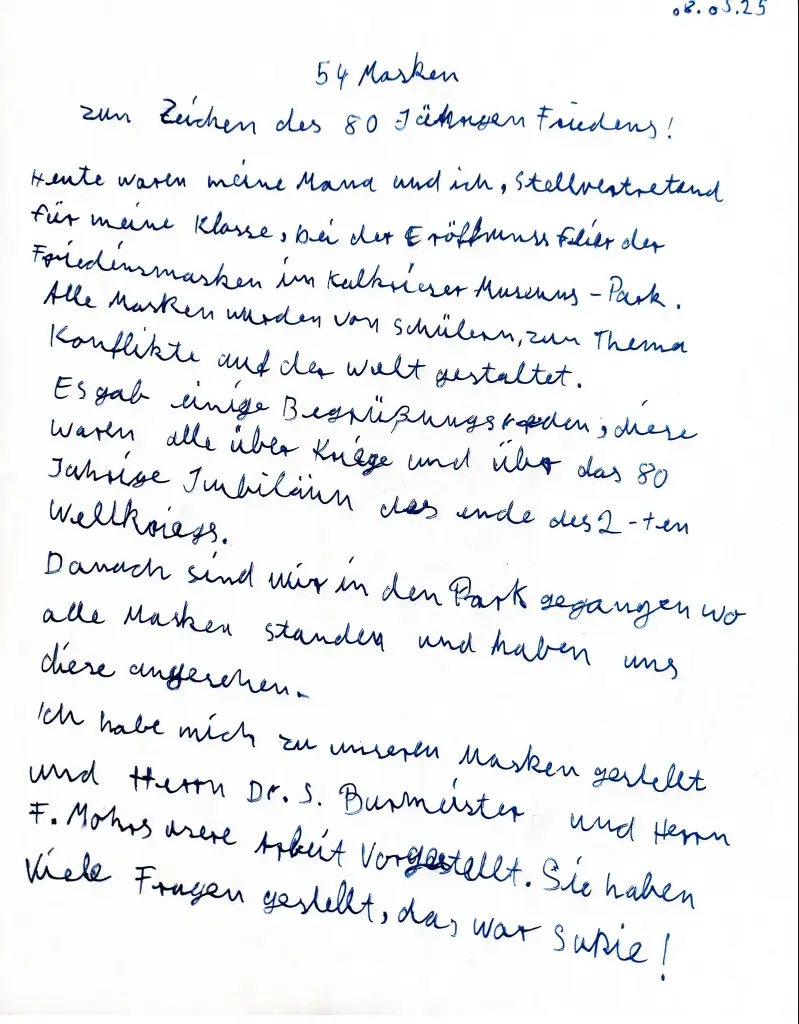 08.05.25
54 Masken
zum Zeichen des 80 Jährigen Friedens!
Heute waren meine Mama und ich, Stellvertretand
für meine Klasse, bei der Eröffnungs Feier der
Friedensmasken im Kalkrieser Museums-Park.
Alle Masken wurden von Schülern, zum Thema
Konflikte auf der Welt gestaltet.
Es gab einige Begrüßungsreden, diese
waren alle über Kriege und über das 80
Jahrige Jubiläum des ende des 2-ten
Weltkriegs.
Danach sind wir in den Park gegangen wo
alle Masken standen und haben uns
diese angesehen.
Ich habe mich zu unseren Masken gestellt
und Herrn Dr. S. Burmeister und Herrn
F. Mohrs unsere Arbeit Vorgestellt. Sie haben
Viele Fragen gestellt, das war